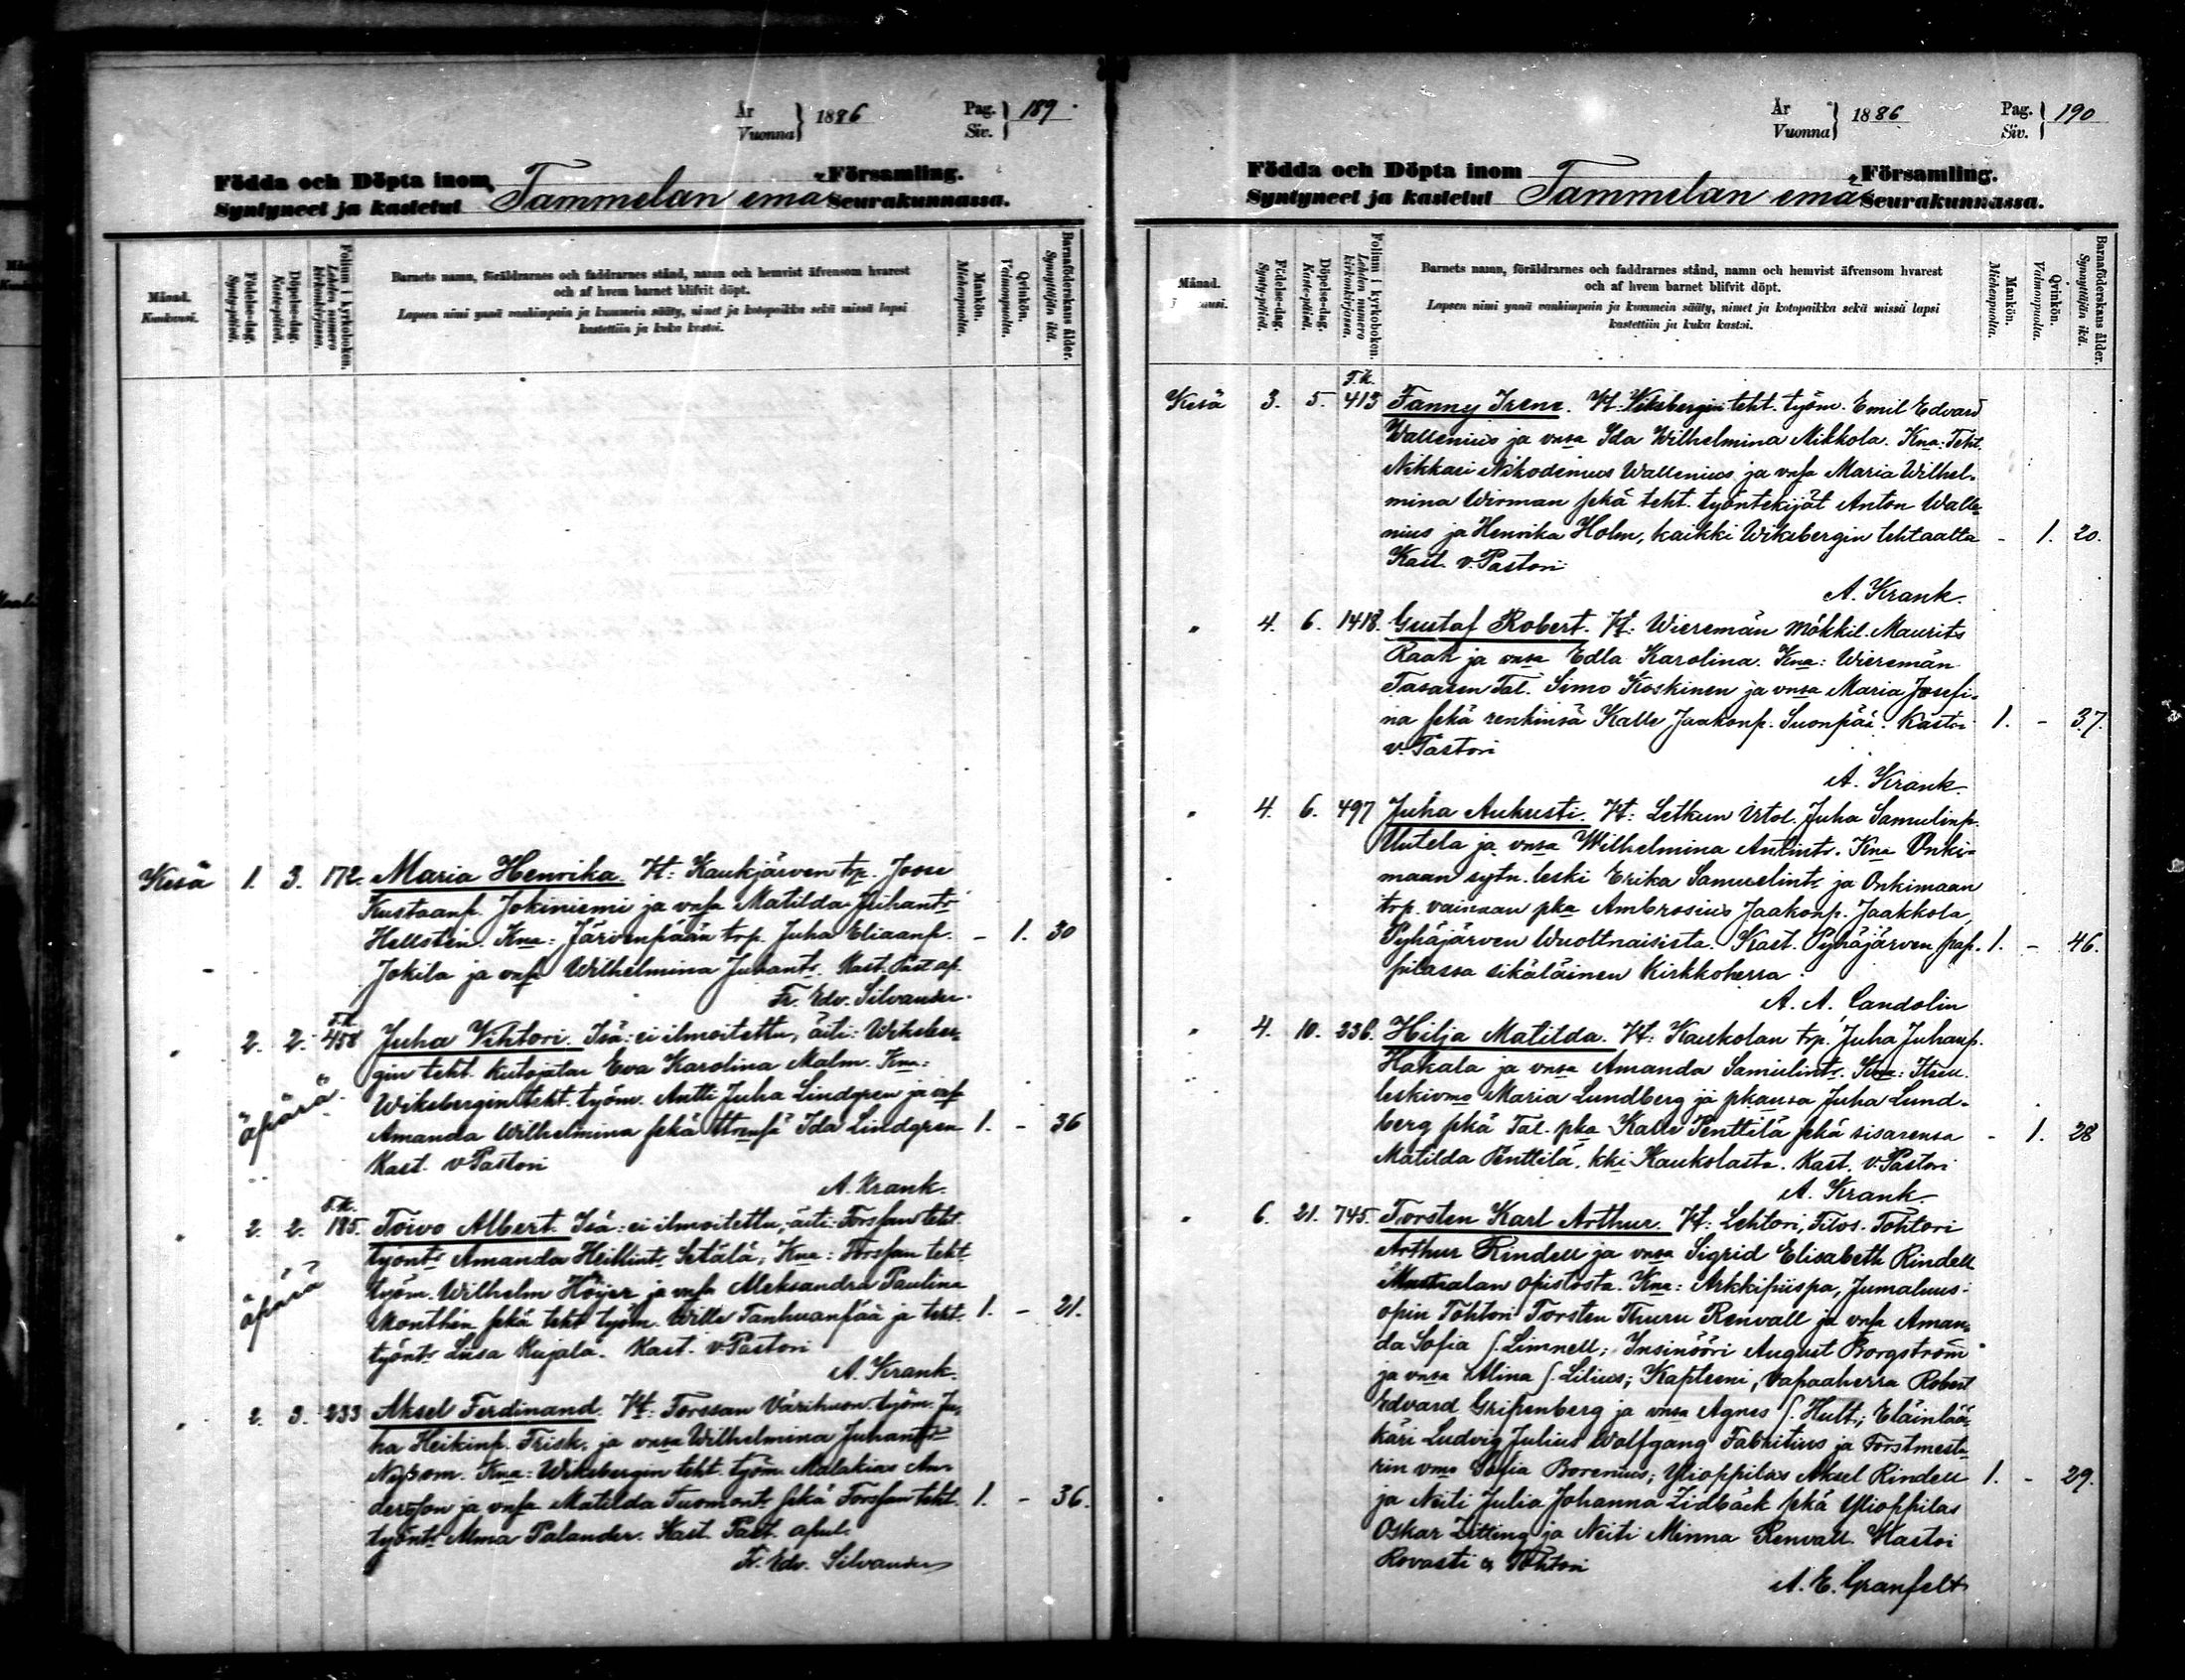 År
Vuonna } 1886
Pag.
Siv. } 189
Födda och Döpta inom Församling.
Syntyneet ja kastetut Tammelan emä Seurakunnassa.
Månad.
Kuukausi.
Födelse-dag.
Synty-päivä.
Döpelse-dag.
Kaste-päivä.
Folium i kyrkoboken.
Lehden numero kirkonkirjassa.
Barnets namn, föräldrarnes och faddrarnes stånd, namn och hemvist äfvensom hvarest
och af hvem barnet blifvit döpt.
Lapsen nimi ynnä vanhimpain ja kummein sääty, nimet ja kotopaikka sekä missä lapsi
kastettiin ja kuka kastoi.
Mankön.
Miehenpuolta.
Qvinkön.
Vaimonpuolta.
Barnaföderskans ålder.
Synnyttäjän ikä.
Kesä 1. 3. 172. Maria Henrika. Vt: Kaukjärven trp. Josse
Kustaanp. Jokiniemi ja vnsa Matilda Juhantr
Hellstén. Kna: Järvenpään trp. Juha Eliaanp. - 1. 30
Jokila ja vnsa Wilhelmina Juhantr. Kast. Past. ap.
Fr. Edv. Silvander.
T.K.
" 2. 2. 458 Juha Vihtori. Isä: ei ilmoitettu, äiti: Wiksber-
gin teht. kutojatar Eva Karolina Malm. Kna:
äpärä. Wiksbergin teht. työm. Antti Juha Lindgren ja vnsa
Amanda Wilhelmina sekä Ida Lindgren 1. - 36
Kast. v. Pastori
A. Krank.
T.K.
" 2. 2. 185. Toivo Albert. Isä: ei ilmoitettu, äiti: Forssan teht.
työntr Amanda Heikkintr. Setälä, Kna: Forssan teht.
äpärä työm. Wilhelm Höijer ja vnsa Aleksandra Paulina
Monthén sekä teht. työm. Wille Tanhuanpää ja teht. 1. - 21.
työntr Liisa Kujala. Kast. v. Pastori
A. Krank.
" 2. 3. 233 Aksel Ferdinand. Vt: Forssan Värihuon. työm. Ju-
ha Heikinp. Frisk. ja vnsa Wilhelmina Juhantr
Kna: Wiksbergin teht. työm. Malakias An-
dersson ja vnsa Matilda Tuomontr. sekä Forssan teht. 1. - 36.
työntr Alma Palander. Kast. Past. apul.
Fr. Edv. Silvander
År
Vuonna } 1886
Pag.
Siv. } 190
Födda och Döpta inom Församling.
Syntyneet ja kastetut Tammelan emä Seurakunnassa.
Månad.
Födelse-dag.
Synty-päivä.
Döpelse-dag.
Kaste-päivä.
Folium i kyrkoboken.
Lehden numero kirkonkirjassa.
Barnets namn, föräldrarnes och faddrarnes stånd, namn och hemvist äfvensom hvarest
och af hvem barnet blifvit döpt.
Lapsen nimi ynnä vanhimpain ja kummein sääty, nimet ja kotopaikka sekä missä lapsi
kastettiin ja kuka kastoi.
Mankön.
Miehenpuolta.
Qvinkön.
Vaimonpuolta.
Barnaföderskans ålder.
Synnyttäjän ikä.
T.K.
Kesä 3. 5. 413 Fanny Irene. Vt: Wiksbergin teht. työm. Emil Edvard
Wallenius ja vnsa Ida Wilhelmina Mikkola. Kna: Teht.
Nikodemus Wallenius ja vnsa Maria Wilhel-
mina Wirman sekä teht. työntekijät Anton Walle-
nius ja Henrika Holm, kaikki Wiksbergin tehtaalta - 1. 20.
Kast. v. Pastori
A. Krank.
" 4. 6. 1418. Gustaf Robert. Vt: Wieremän Mökkil. Maurits
Raak ja vnsa Edla Karolina. Kna: Wieremän
Tal. Simo Koskinen ja vnsa Maria Josefi-
na sekä renkinsä Kalle Jaakonp. Suonpää. Kastoi 1. - 37.
v. Pastori
A. Krank.
" 4. 6. 497 Juha Aukusti. Vt: Letkun Irtol. Juha Samulinp.
Uutela ja vnsa Wilhelmina Antintr. Kna Onki-
maan sytn. leski Erika Samuelintr. ja Onkimaan
trp. vainaan pka Ambrosius Jaakonp. Jaakkola,
Pyhäjärven Wuoltnaisista. Kast. Pyhäjärven pap- 1. - 46.
pilassa sikäläinen Kirkkoherra
A. A. Candolin
" 4. 10. 236. Hilja Matilda. Vt: Kaukolan trp. Juha Juhanp.
Hakala ja vnsa Amanda Samulintr. Kna: Itsell.
leskivmo Maria Lundberg ja pkansa Juha Lund-
berg sekä Tal. pka Kalle Penttilä sekä sisarensa - 1. 28
Matilda Penttilä, kki Kaukolasta. Kast. v. Pastori
A. Krank.
" 6. 21. 745. Torsten Karl Arthur. Vt: Lehtori, Filos. Tohtori
Arthur Rindell ja vnsa Sigrid Elisabeth Rindell
Mustialan opistosta. Kna: Arkkipiispa, Jumaluus-
opin Tohtori Torsten Thure Renvall ja vnsa Aman-
da Sofia s. Limnell; Insinööri August Borgström
ja vnsa Alina s. Lilius; Kapteeni, Vapaaherra Robert
Edvard Gripenberg ja vnsa Agnes s. Hult; Eläinlää-
käri Ludvig Julius Wolfgang Fabritius ja Forstmesta-
rin vmo Sofia Borenius; Ylioppilas Aksel Rindell 1. - 29.
ja Neiti Julia Johanna Lidbäck sekä Ylioppilas
Oskar Zitting ja Neiti Minna Renvall. Kastoi
Rovasti & Tohtori
A. E. Granfelt